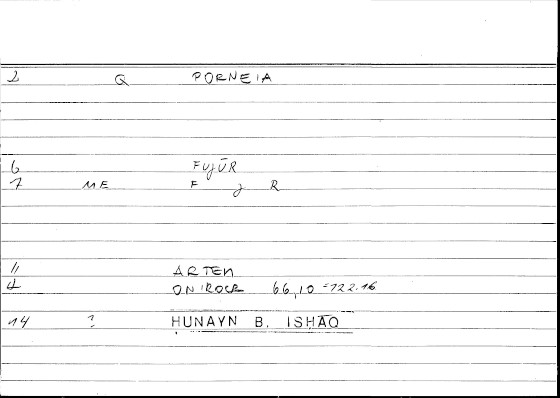 2 Q PORNEIA
6 FUJŪR
7 ME F J R
11 ARTEM
4 ONIROCR 66,10 = 122.16
14 ? HUNAYN B. ISHĀQ